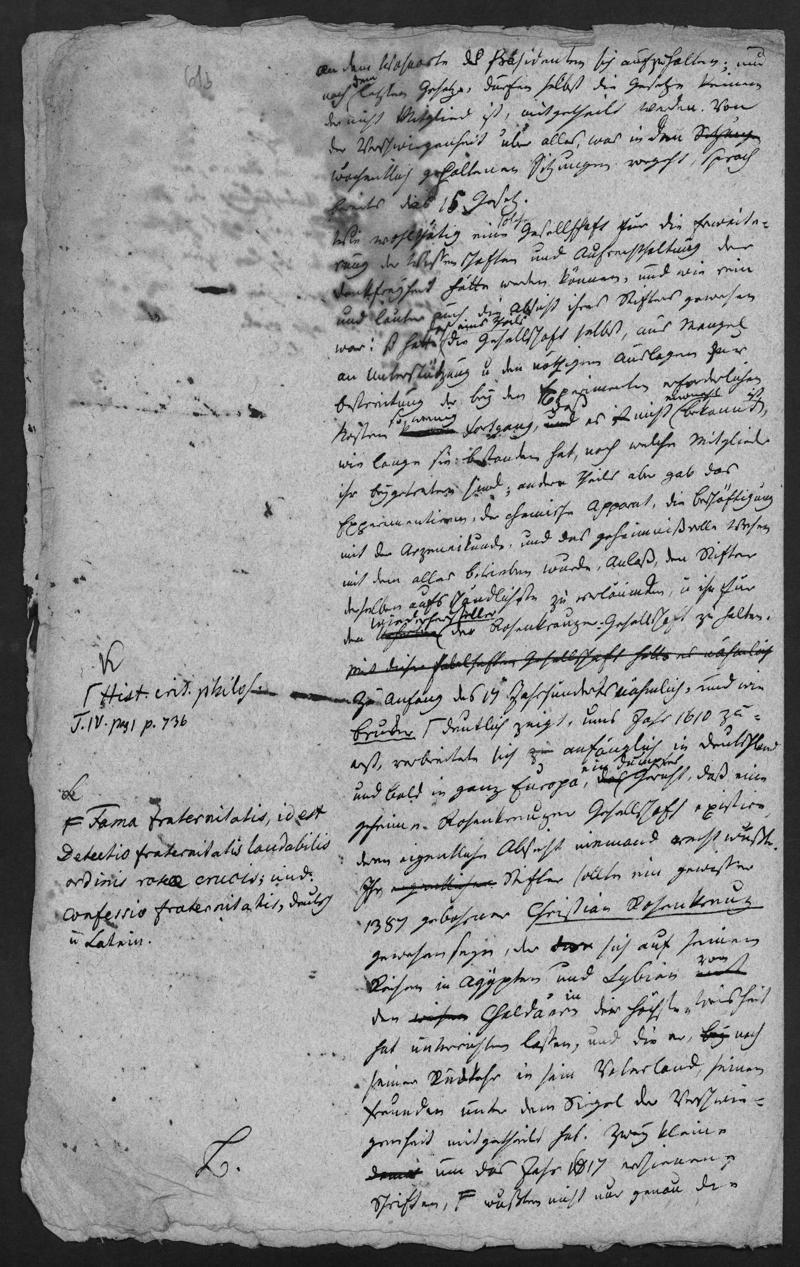 an dem Wohnorte des Präsidenten sich aufzuhalten; und
nach dem letzten Gesetze, dürfen selbst die Gesetze keinem
der nicht Mitglied ist, mitgetheilt werden. Von
der Verschwiegenheit über alles, was in den Sitzungen
wöchentlich gehaltenen Sitzungen vorgeht, sprach
bereits das 15 Gesetz.
Wie wohlthätig eine solche Gesellschaft für die Erweite=
rung der Wissenschaften und Aufrechthaltung der
Denkfreyheit hätte werden können, und wie rein
und lauter auch die Absicht ihres Stifters gewesen
war: so hatte eines Theils die Gesellschaft selbst, aus Mangel
an Unterstützung u den nöthigen Auslagen zur
Bestreitung der bey den Experimenten erforderlichen
Kosten so wenig Fortgang, daß es nicht bekannt ist,
wie lange sie bestanden hat, noch welche Mitglieder
ihr beygetreten sind; andern Theils aber gab das
Experimentiren, der chemische Apparat, die Beschäftigung
mit der Arzneikunde, und das geheimnißvolle Wesen
mit dem alles betrieben wurde, Anlaß, den Stifter
derselben aufs schändlichste zu verläumden, u ihn für
den Wiederhersteller der Rosenkreuzer-Gesellschaft zu halten.
Mit dieser fabelhaften Gesellschaft hatte es nähmlich
Zu Anfang des 17 Jahrhunderts nähmlich, und wie
Brucker Γ deutlich zeigt, ums Jahr 1610 zu=
erst, verbreitete sich anfänglich in Deutschland
und bald in ganz Europa, ein dumpfes Gerücht, daß eine
geheime Rosenkreuzer Gesellschaft existire,
deren eigentliche Absicht niemand recht wußte.
Ihr eigentlicher Stifter sollte ein gewisser
1387 geborner Christian Rosenkreuz
gewesen seyn, der sich auf seinen
Reisen in Ägypten und Lybien von
den Chaldäern in der höchsten Weisheit
hat unterrichten lassen, und die er, bey nach
seiner Rückkehr in sein Vaterland, seinen
Freunden unter dem Siegel der Verschwie=
genheit mitgetheilt hat. Zwey kleine
um das Jahr 1617 erschienene
Schriften, F wußten nicht nur genau den
Γ Hist. crit. philos.
T. IV. p. 736
F Fama fraternitatis, id est
Detectio fraternitatis laudabilis
ordinis roseae crucis; und:
Confessio fraternitatis, deutsch
u Latein.
L.